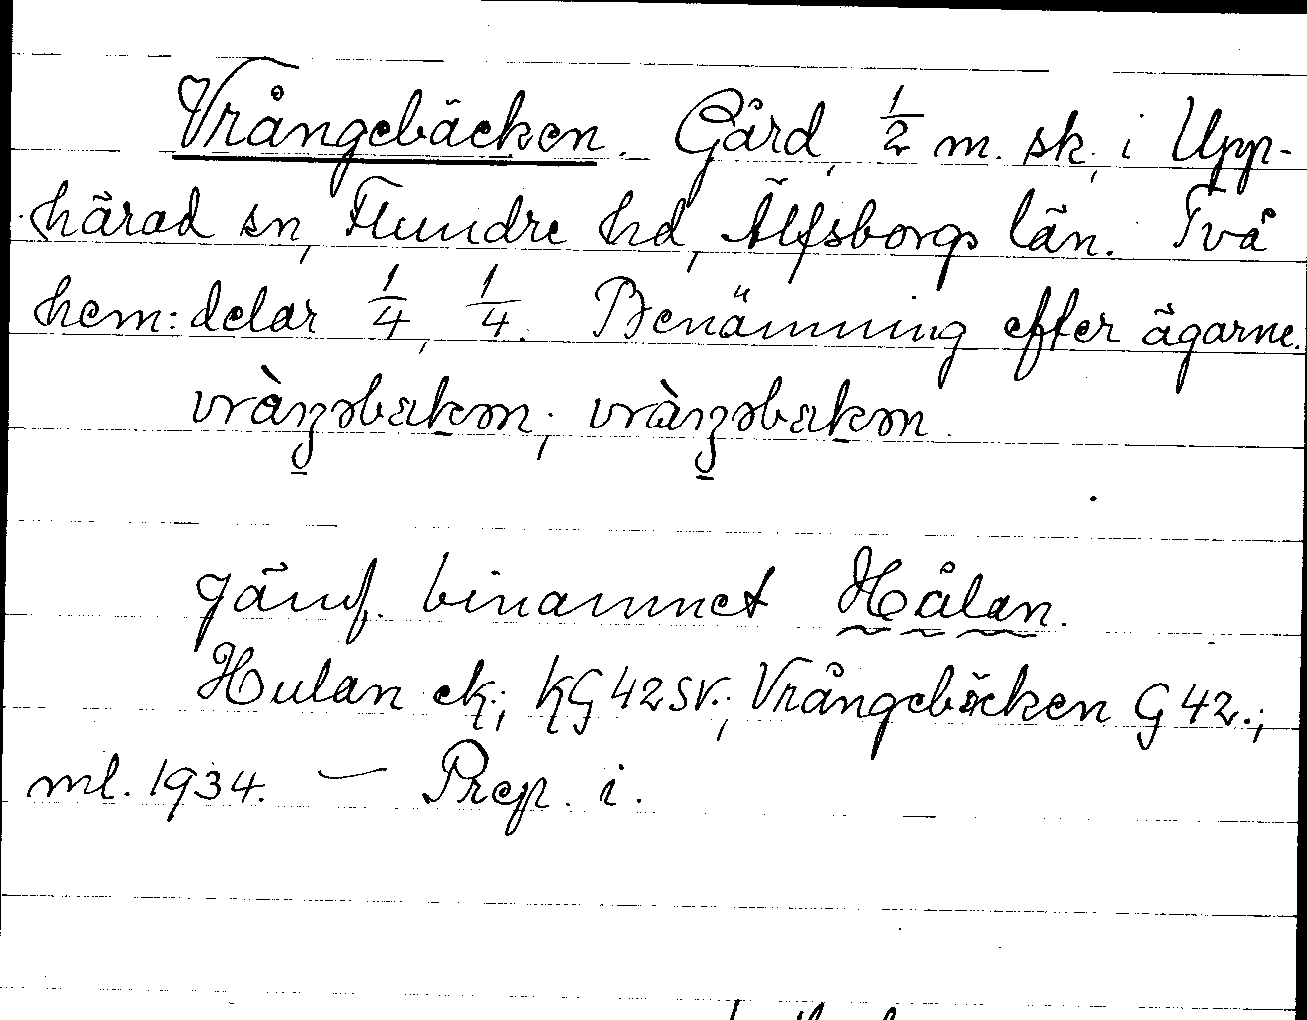 Vrångebäcken. Gård, 1/2 m. sk, i Upp-
härad sn, Flundre hd, Älfsborgs län. Två
hem: delar 1/4, 1/4. Benämning efter ägarne.
Jämf. binamnet Hålan.
Hulan ek; KG 42 SV.; Vrångebäcken G 42.;
ml. 1934. — Prep. i.